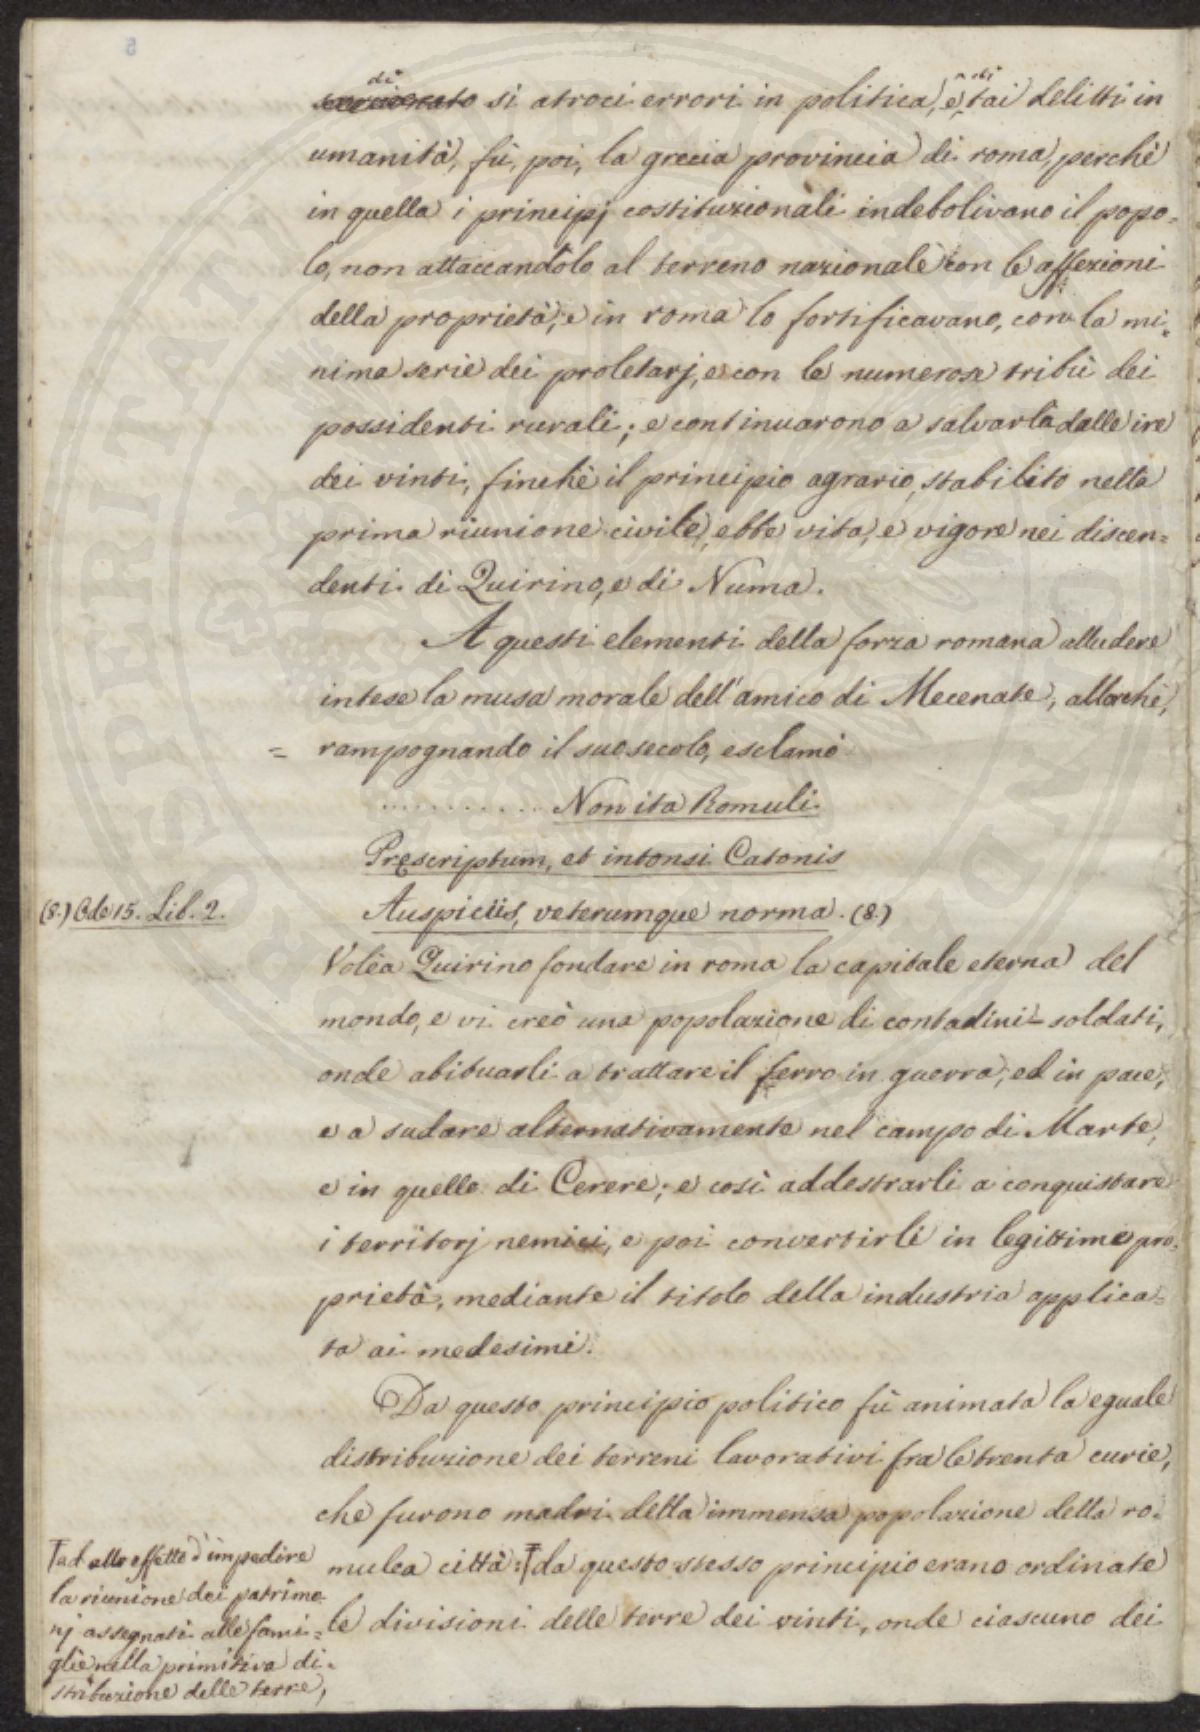 di
si atroci errori in politica, e di tai delitti in
umanità, fù, poi, la grecia provincia di roma, perchè
in quella i principj costituzionali indebolivano il popo=
lo, non attaccandolo al terreno nazionale con le affezioni
della proprietà; e in roma lo fortificavano, con la mi=
nima serie dei proletarj, e con le numerose tribù dei
possidenti rurali; e continuarono a salvarla dalle ire
dei vinti, finchè il principio agrario, stabilito nella
prima riunione civile, ebbe vita, e vigore nei discen=
denti di Quirino, e di Numa.
A questi elementi della forza romana alludere
intese la musa morale dell'amico di Mecenate, allorchè,
= rampognando il suo secolo, esclamò
........... Non ita Romuli
Præscriptum, et intonsi Catonis
Auspiciis, veterumque norma. (8.)
(8.) Ode 15. Lib. 2.
Volea Quirino fondare in roma la capitale eterna del
mondo, e vi creò una popolazione di contadini-soldati,
onde abituarli a trattare il ferro in guerra, ed in pace,
e a sudare alternativamente nel campo di Marte,
e in quello di Cerere; e così addestrarli a conquistare
i territorj nemici, e poi convertirli in legittime pro=
prietà, mediante il titolo della industria applica=
ta ai medesimi.
Da questo principio politico fù animata la eguale
distribuzione dei terreni lavorativi fra le trenta curie,
che furono madri della immensa popolazione della ro=
mulea città: da questo stesso principio erano ordinate
le divisioni delle terre dei vinti, onde ciascuno dei
ad alto effetto d'impedire
la riunione dei patrimo=
nj assegnati alle fami=
glie nella primitiva di=
stribuzione delle terre,
PROSPERITATI PUBLICAE AUGENDAE